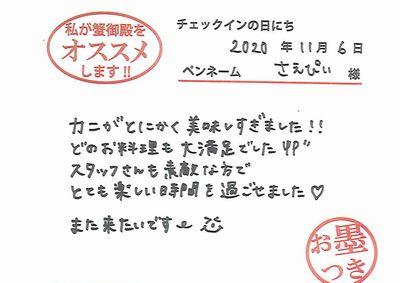 私が蟹御殿を
オススメ
します!!
チェックインの日にち
2020 年 11月 6日
ペンネーム さえぴぃ 様
カニがとにかく美味しすぎました!!
どのお料理も大満足でした
スタッフさんも素敵な方で
とても楽しい時間を過ごせました♡
また来たいです
お墨
つき